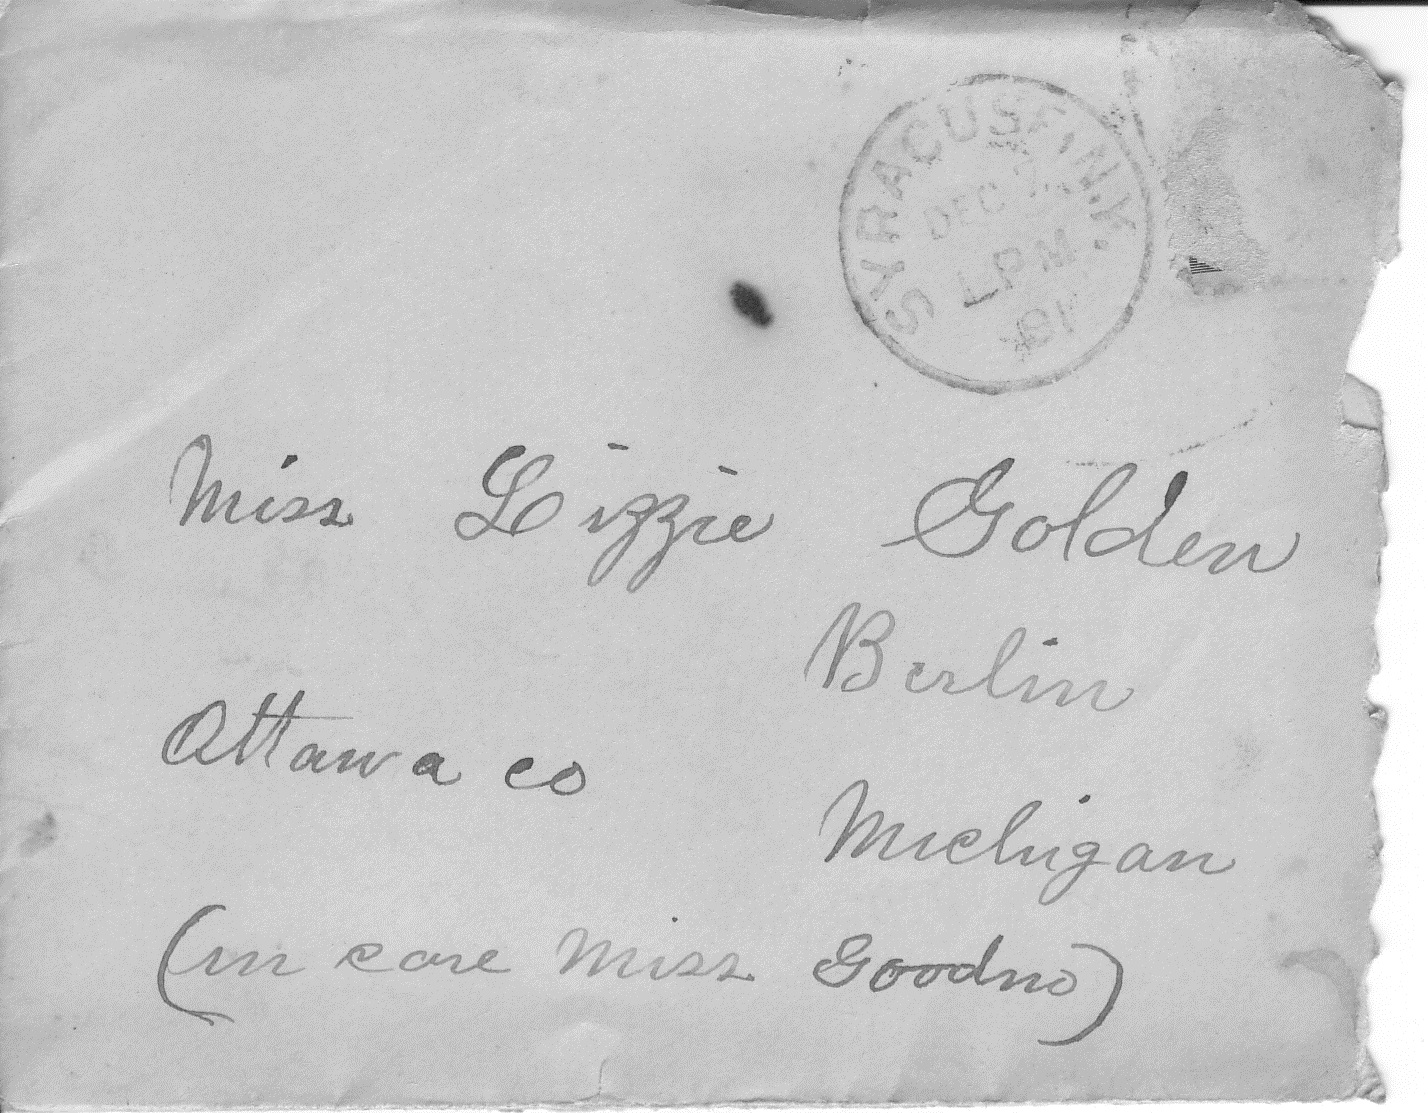 SYRACUSE, N.Y.
DEC
PM
91
Miss Lizzie Golden
Berlin
Ottawa co
Michigan
(in care Miss Goodno)